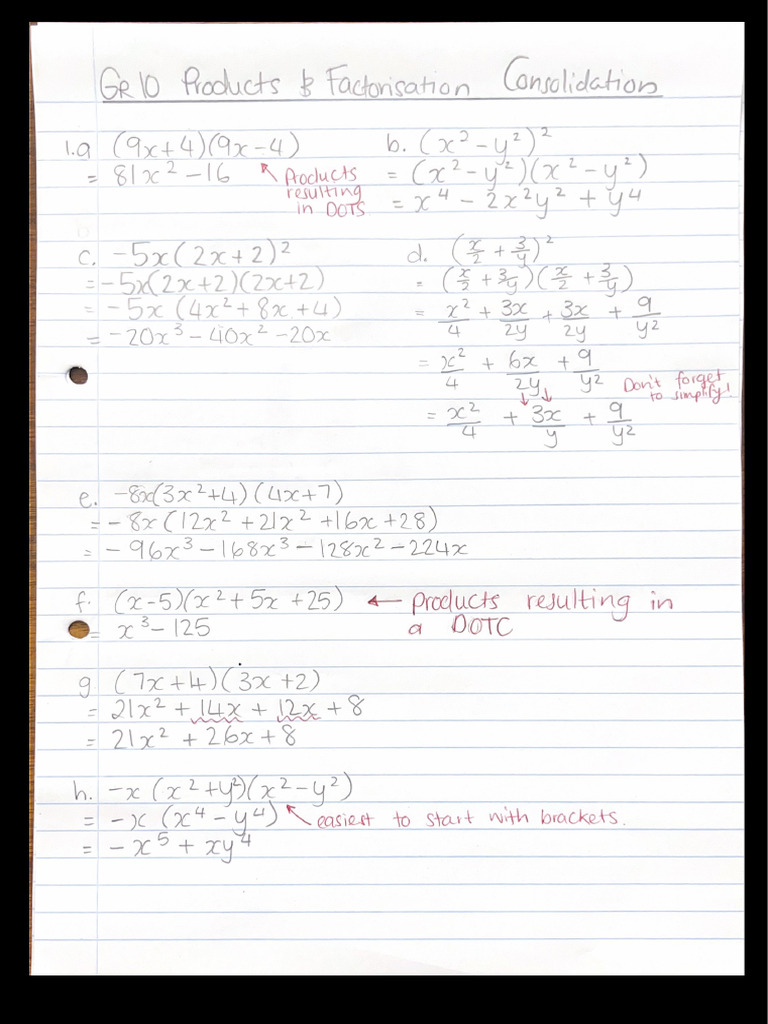 Gr 10 Products & Factorisation Consolidation
1.a (9x+4)(9x-4)
= 81x² - 16
Products
resulting
in DOTS
b. (x² - y²)²
= (x² - y²)(x² - y²)
= x⁴ - 2x²y² + y⁴
c. -5x(2x+2)²
= -5x(2x+2)(2x+2)
= -5x (4x² + 8x + 4)
= -20x³ - 40x² - 20x
d. (x/2 + 3/y)²
= (x/2 + 3/y)(x/2 + 3/y)
= x²/4 + 3x/2y + 3x/2y + 9/y²
= x²/4 + 6x/2y + 9/y²
Don't forget
to simplify!
= x²/4 + 3x/y + 9/y²
e. -8x(3x²+4)(4x+7)
= -8x(12x² + 21x² + 16x + 28)
= -96x³ - 168x³ - 128x² - 224x
f. (x-5)(x² + 5x + 25) ← Products resulting in
a DOTC
= x³ - 125
g (7x+4)(3x+2)
= 21x² + 14x + 12x + 8
= 21x² + 26x + 8
h. -x (x² + y²)(x² - y²)
= -x (x⁴ - y⁴) easiest to start with brackets.
= -x⁵ + xy⁴